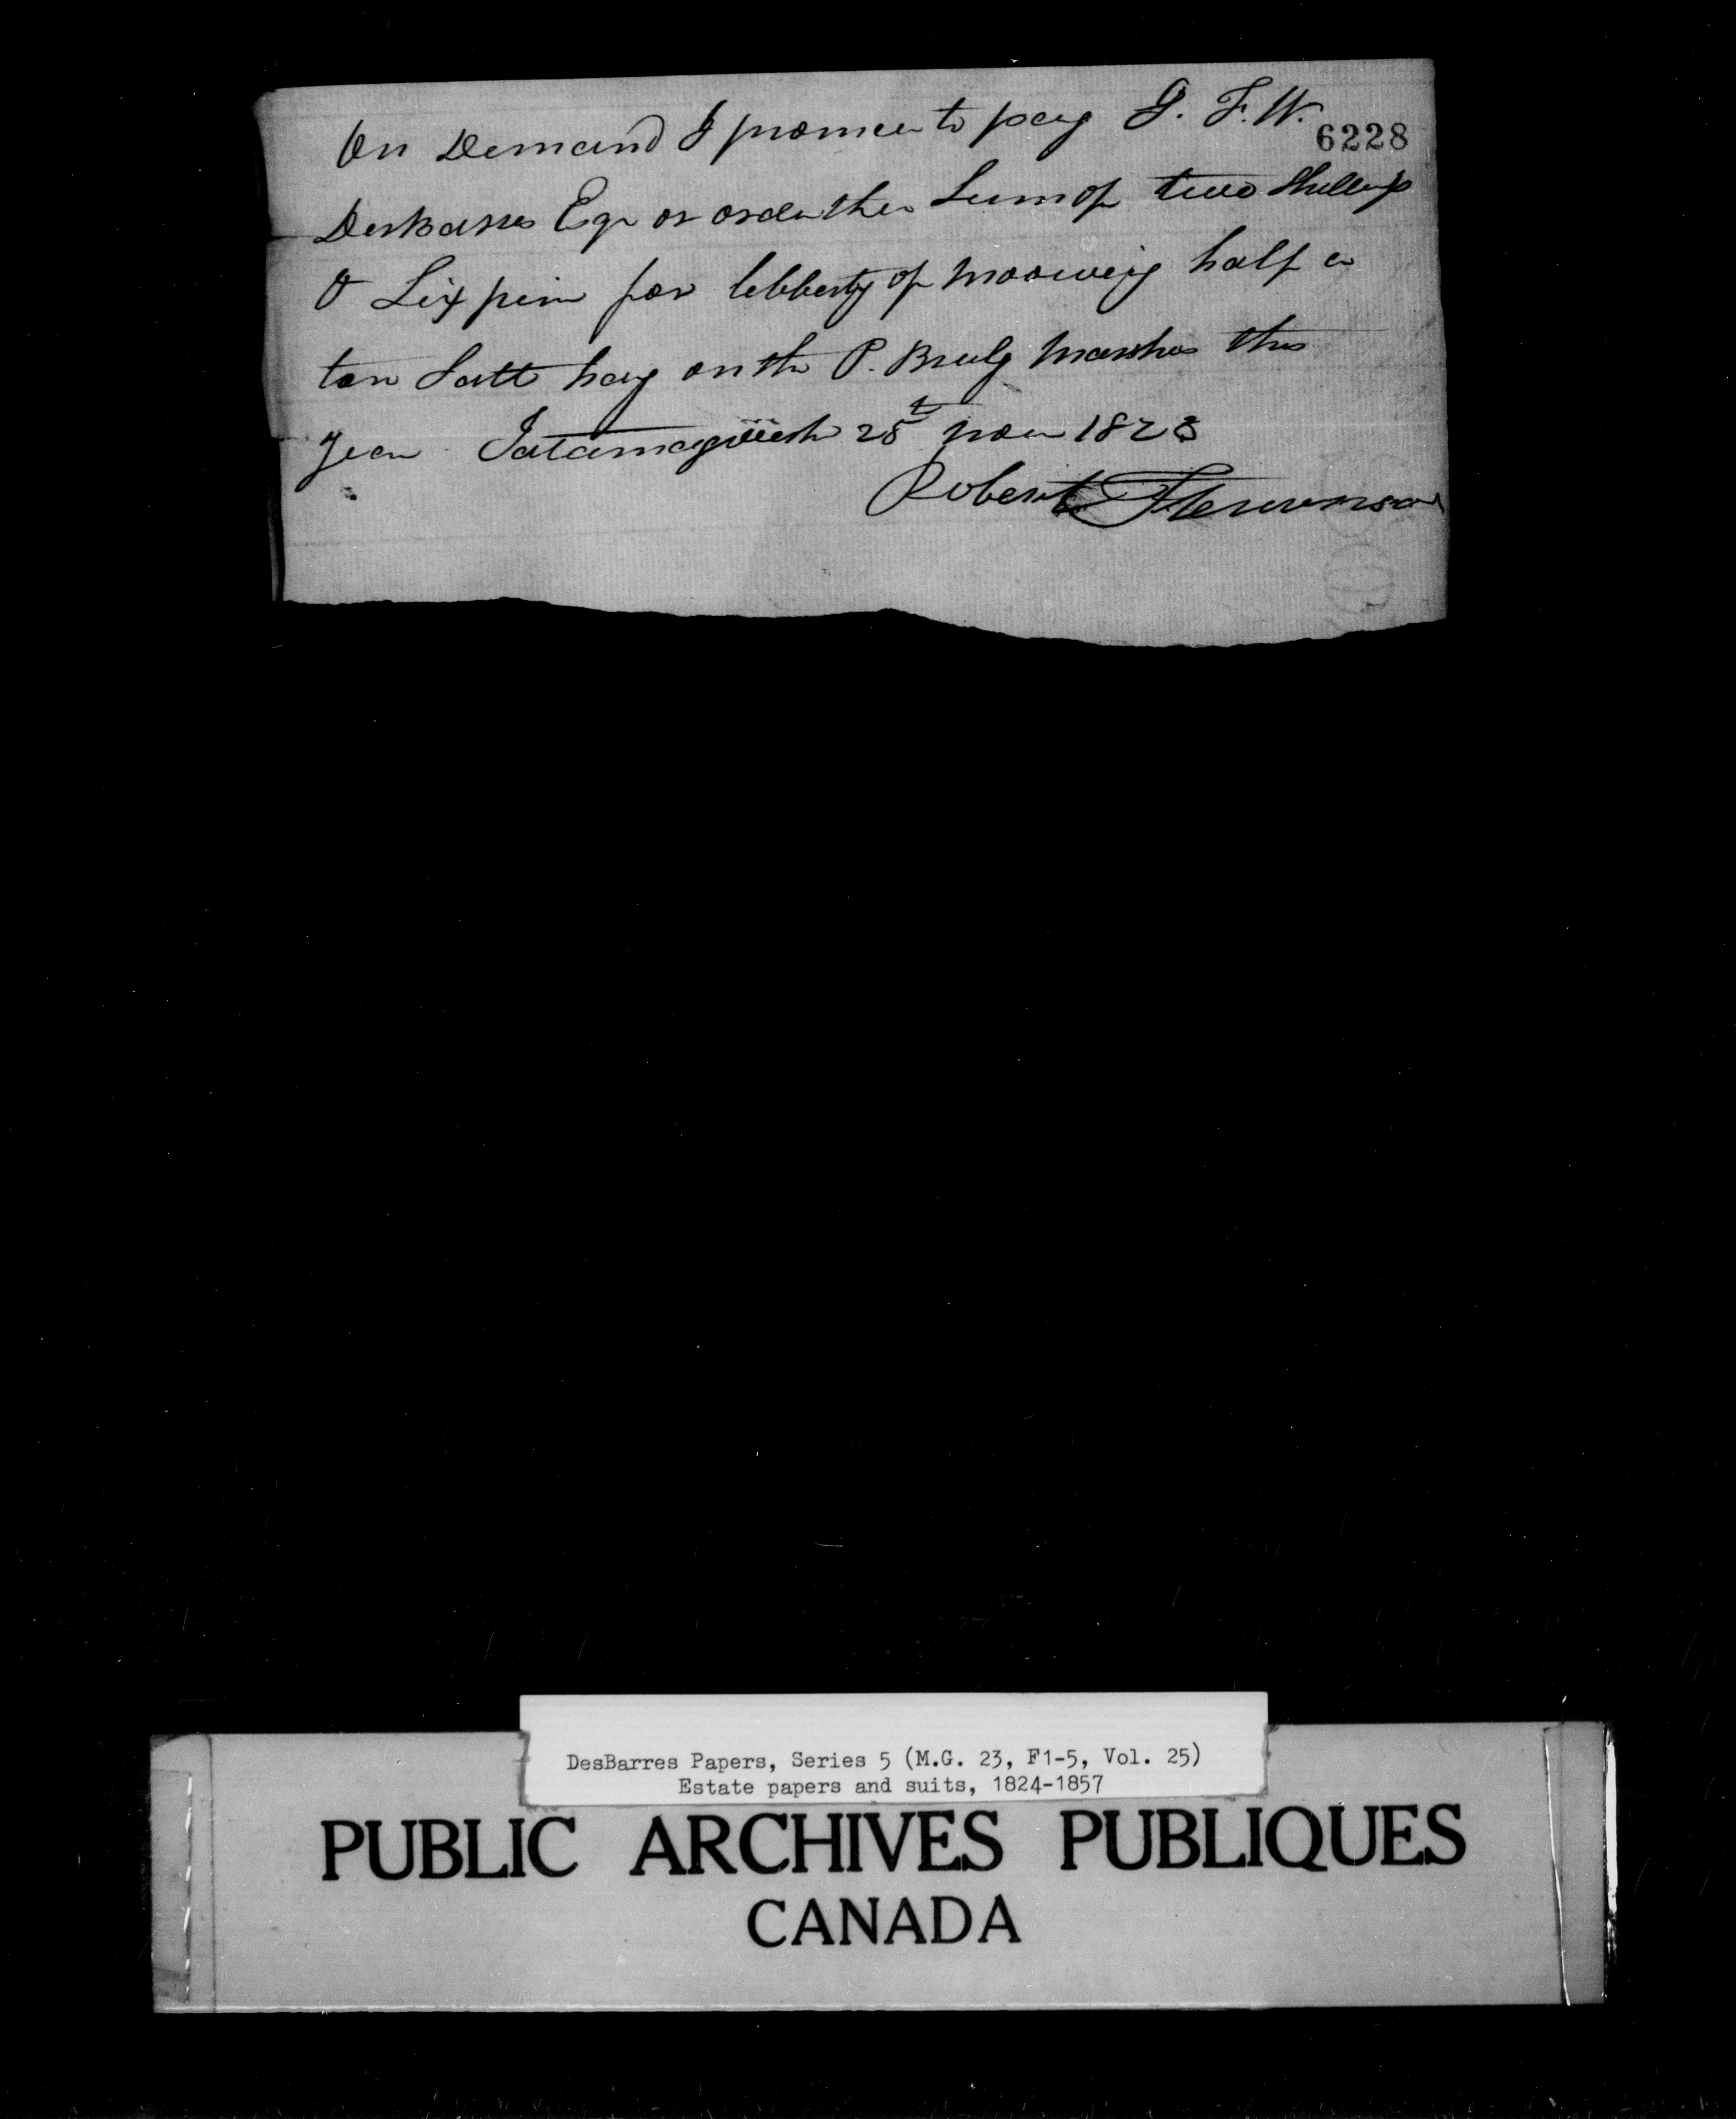 On Demand I promise to pay J. F. W.
6228
DesBarres Eqr or order the Sum of two Shillings
& Six pence for libberty of mooweing half a
ton Salt hay on the P. Bruly marshes this
year Tatamagouish 28t Nov 1823
Robert Stevenson
DesBarres Papers, Series 5 (M.G. 23, F1-5, Vol. 25)
Estate papers and suits, 1824-1857
PUBLIC ARCHIVES PUBLIQUES
CANADA